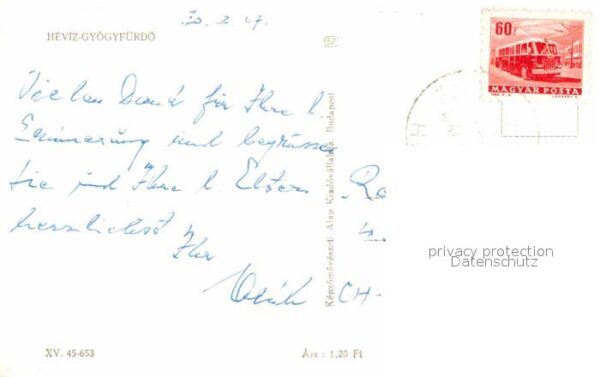 30. 2. 67.
HÉVÍZ-GYÓGYFÜRDŐ
60f
MAGYAR POSTA
Vielen Dank für Ihre l.
Erinnerung und begrüsse
Sie und Ihre l. Eltern
herzlichst
Ihr
CH-
Képzőművészeti Alap Kiadóvállalata, Budapest
privacy protection
Datenschutz
XV. 45-653
Ára: 1,20 Ft